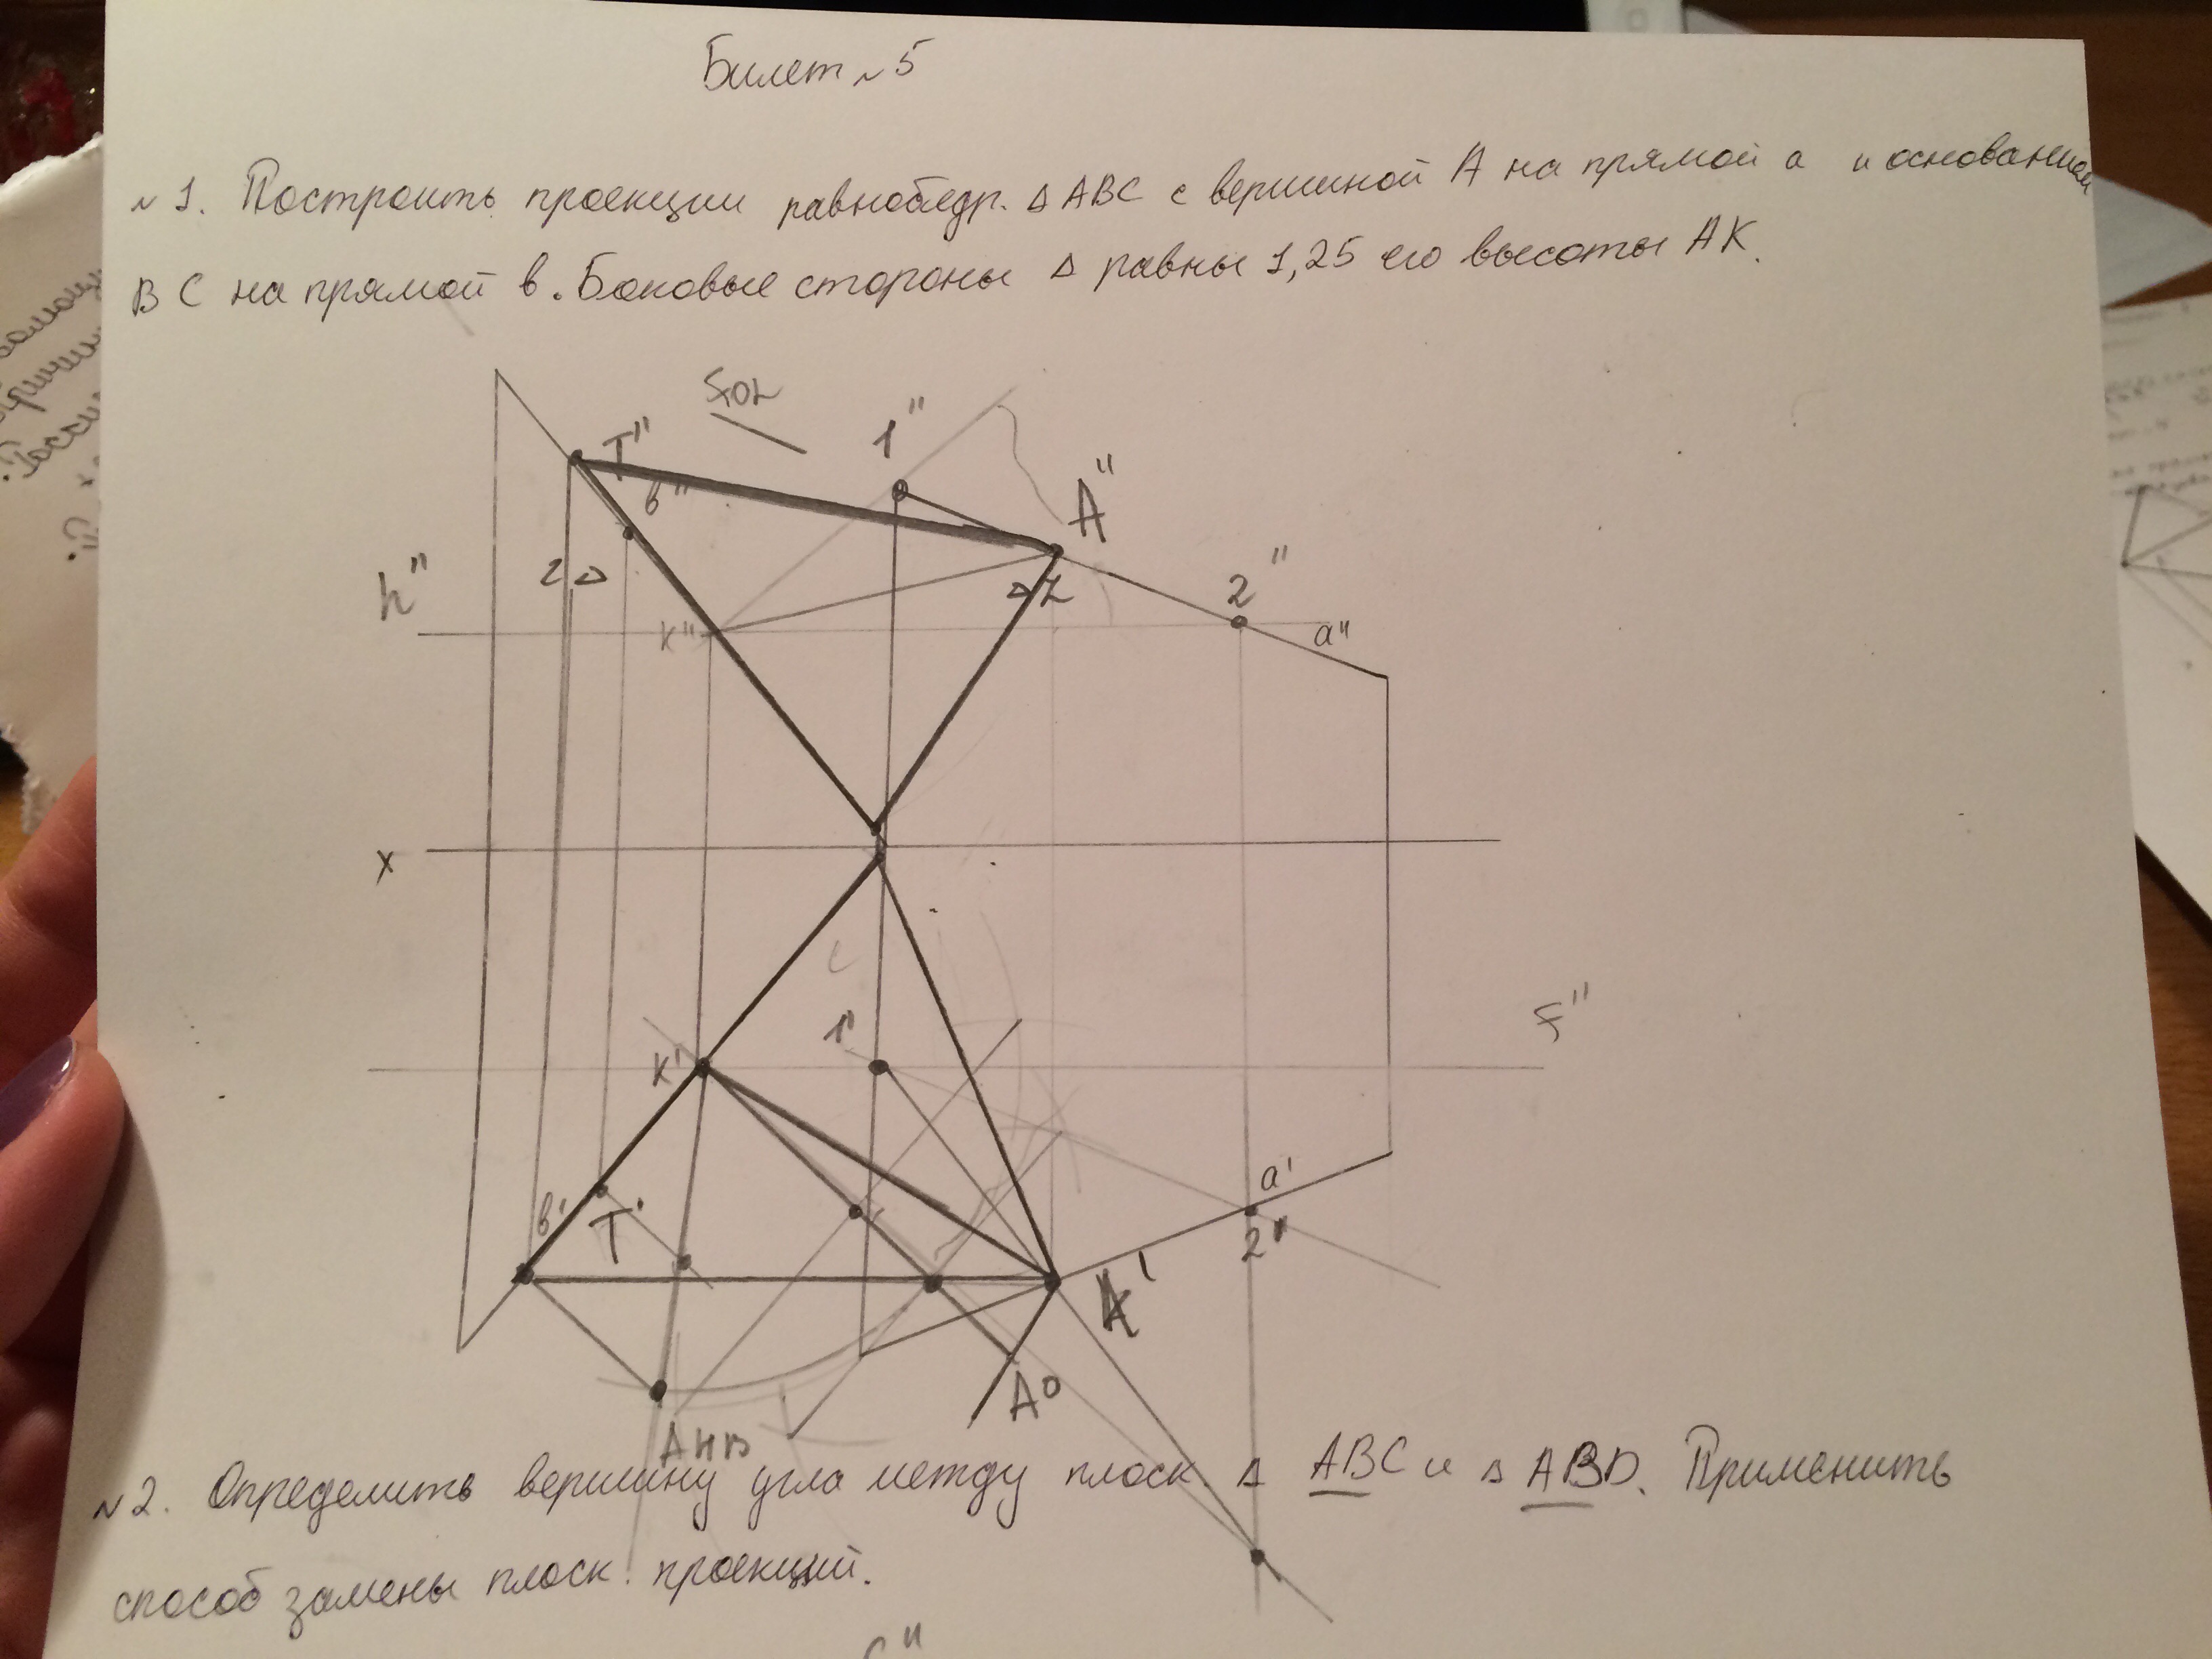 Билет №5
№1. Построить проекции равнобедр. Δ ABC с вершиной A на прямой a и основанием
BC на прямой в. Боковые стороны Δ равны 1,25 его высоты AK.
T"
1"
в"
A"
h"
2"
ΔZ
K"
a"
x
F"
1'
K'
a'
в'
T'
2'
A'
A0
АНВ
№2. Определить вершину угла между плоск. Δ ABC и Δ ABD. Применить
способ замены плоск. проекций.
C"